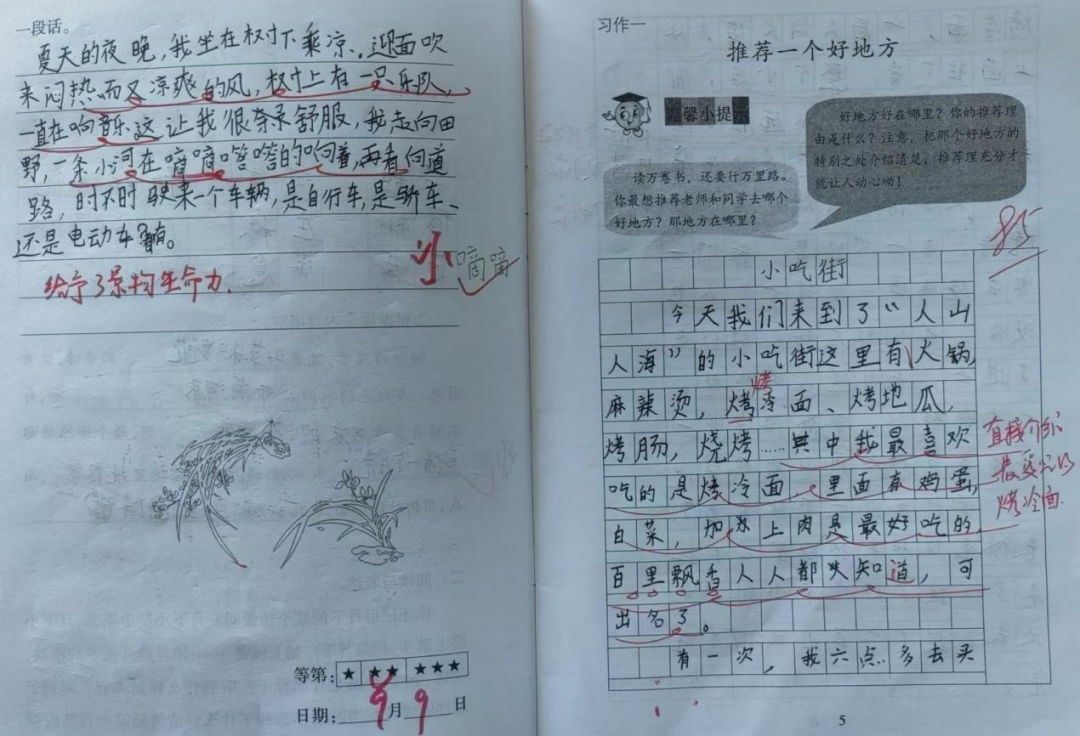 一段话。
夏天的夜晚，我坐在树下乘凉，迎面吹
来闷热而又凉爽的风，树上有一只乐队，
一直在响音乐这让我很舒服，我走向田
野，一条小河在嘀嘀嗒嗒的响着，再看向道
路，时不时驶来一个车辆，是自行车，是轿车、
还是电动车都有。
小嘀嘀
给予了景物生命力.
等第：★ ★★ ★★★
日期：9月9日
习作一
推荐一个好地方
温馨小提示
好地方好在哪里？你的推荐理
由是什么？注意，把那个好地方的
特别之处介绍清楚，推荐理充分才
能让人动心呦！
读万卷书，还要行万里路。
你最想推荐老师和同学去哪个
好地方？那地方在哪里？
85
小吃街
今天我们来到了“人山
人海”的小吃街这里有火锅，
麻辣烫，烤冷面、烤地瓜，
烤
烤肠，烧烤……其中我最喜欢
吃的是烤冷面，里面有鸡蛋，
白菜，加上肉是最好吃的，
百里飘香人人都知道，可
出名了。
有一次，我六点多去买
直接介绍
最爱吃的
烤冷面
5